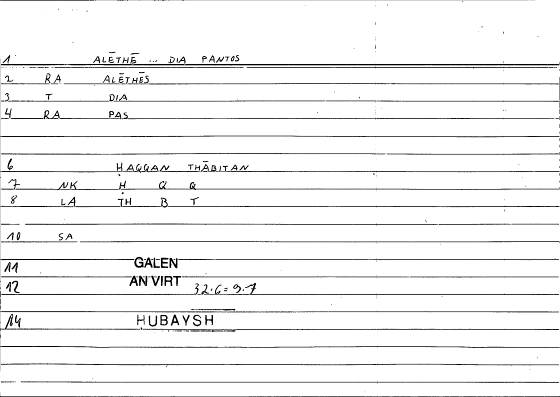 1 ALĒTHĒ ... DIA PANTOS
2 RA ALĒTHĒS
3 T DIA
4 RA PAS
6 ḤAQQAN THĀBITAN
7 NK Ḥ Q Q
8 LA TH B T
10 SA
11 GALEN
12 AN VIRT 32.6=9.7
14 HUBAYSH